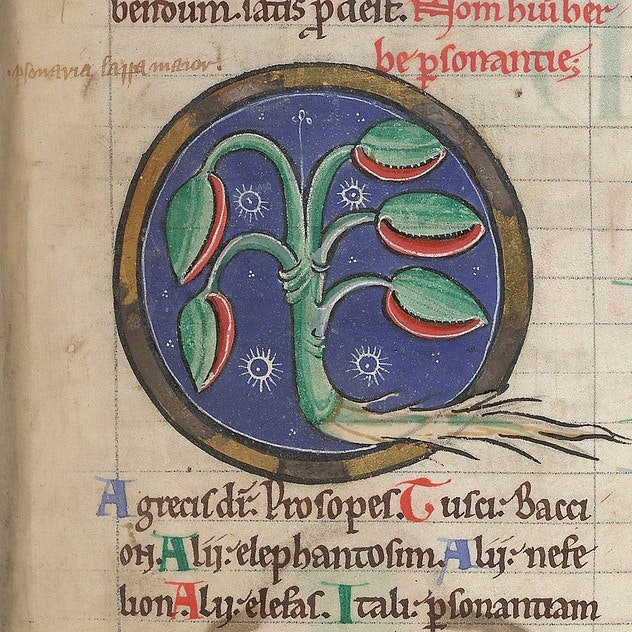 bendum. latis p̱ deſt. Nom huiꝰ her
be pſonantie;
pſonaria lappa maior!
A grecis dr̄: Proſopeſ. Tuſci: Bacci
on. Alij: elephantoſim. Alij: nefe
lion. Alij: elefas. Itali: pſonantiam